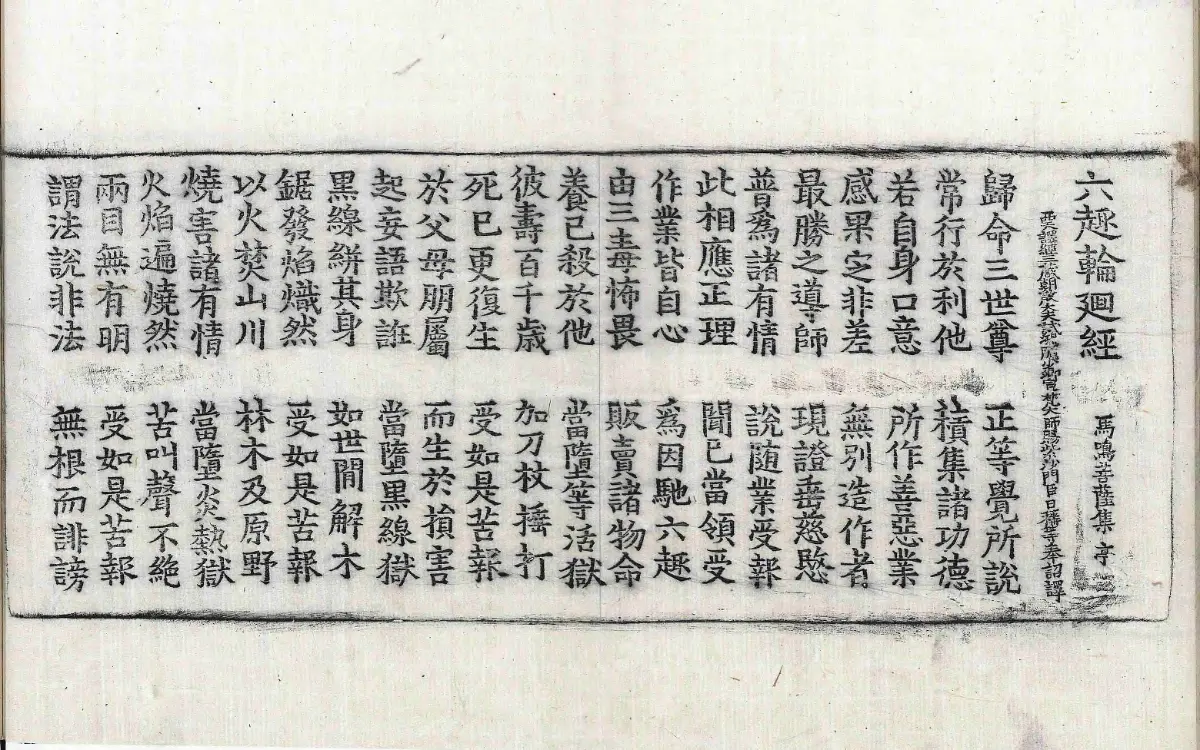 六趣輪廻經 馬鳴菩薩集 亭
西天譯經三藏朝散大夫試鴻臚少卿宣梵大師賜紫沙門臣日稱等奉詔譯
歸命三世尊 正等覺所說
常行於利他 積集諸功德
若自身口意 所作善惡業
感果定非差 無別造作者
最勝之導師 現證垂慈愍
普爲諸有情 說随業受報
此相應正理 聞已當領受
作業皆自心 爲因馳六趣
由三毒怖畏 販賣諸物命
養己殺於他 當墮等活獄
彼壽百千歲 加刀杖捶打
死已更復生 受如是苦報
於父母朋屬 而生於損害
起妄語欺誑 當墮黑線獄
黑線絣其身 如世間解木
鋸發焰熾然 受如是苦報
以火焚山川 林木及原野
燒害諸有情 當墮炎熱獄
火焰遍燒然 苦叫聲不絶
兩目無有明 受如是苦報
謂法說非法 無根而誹謗